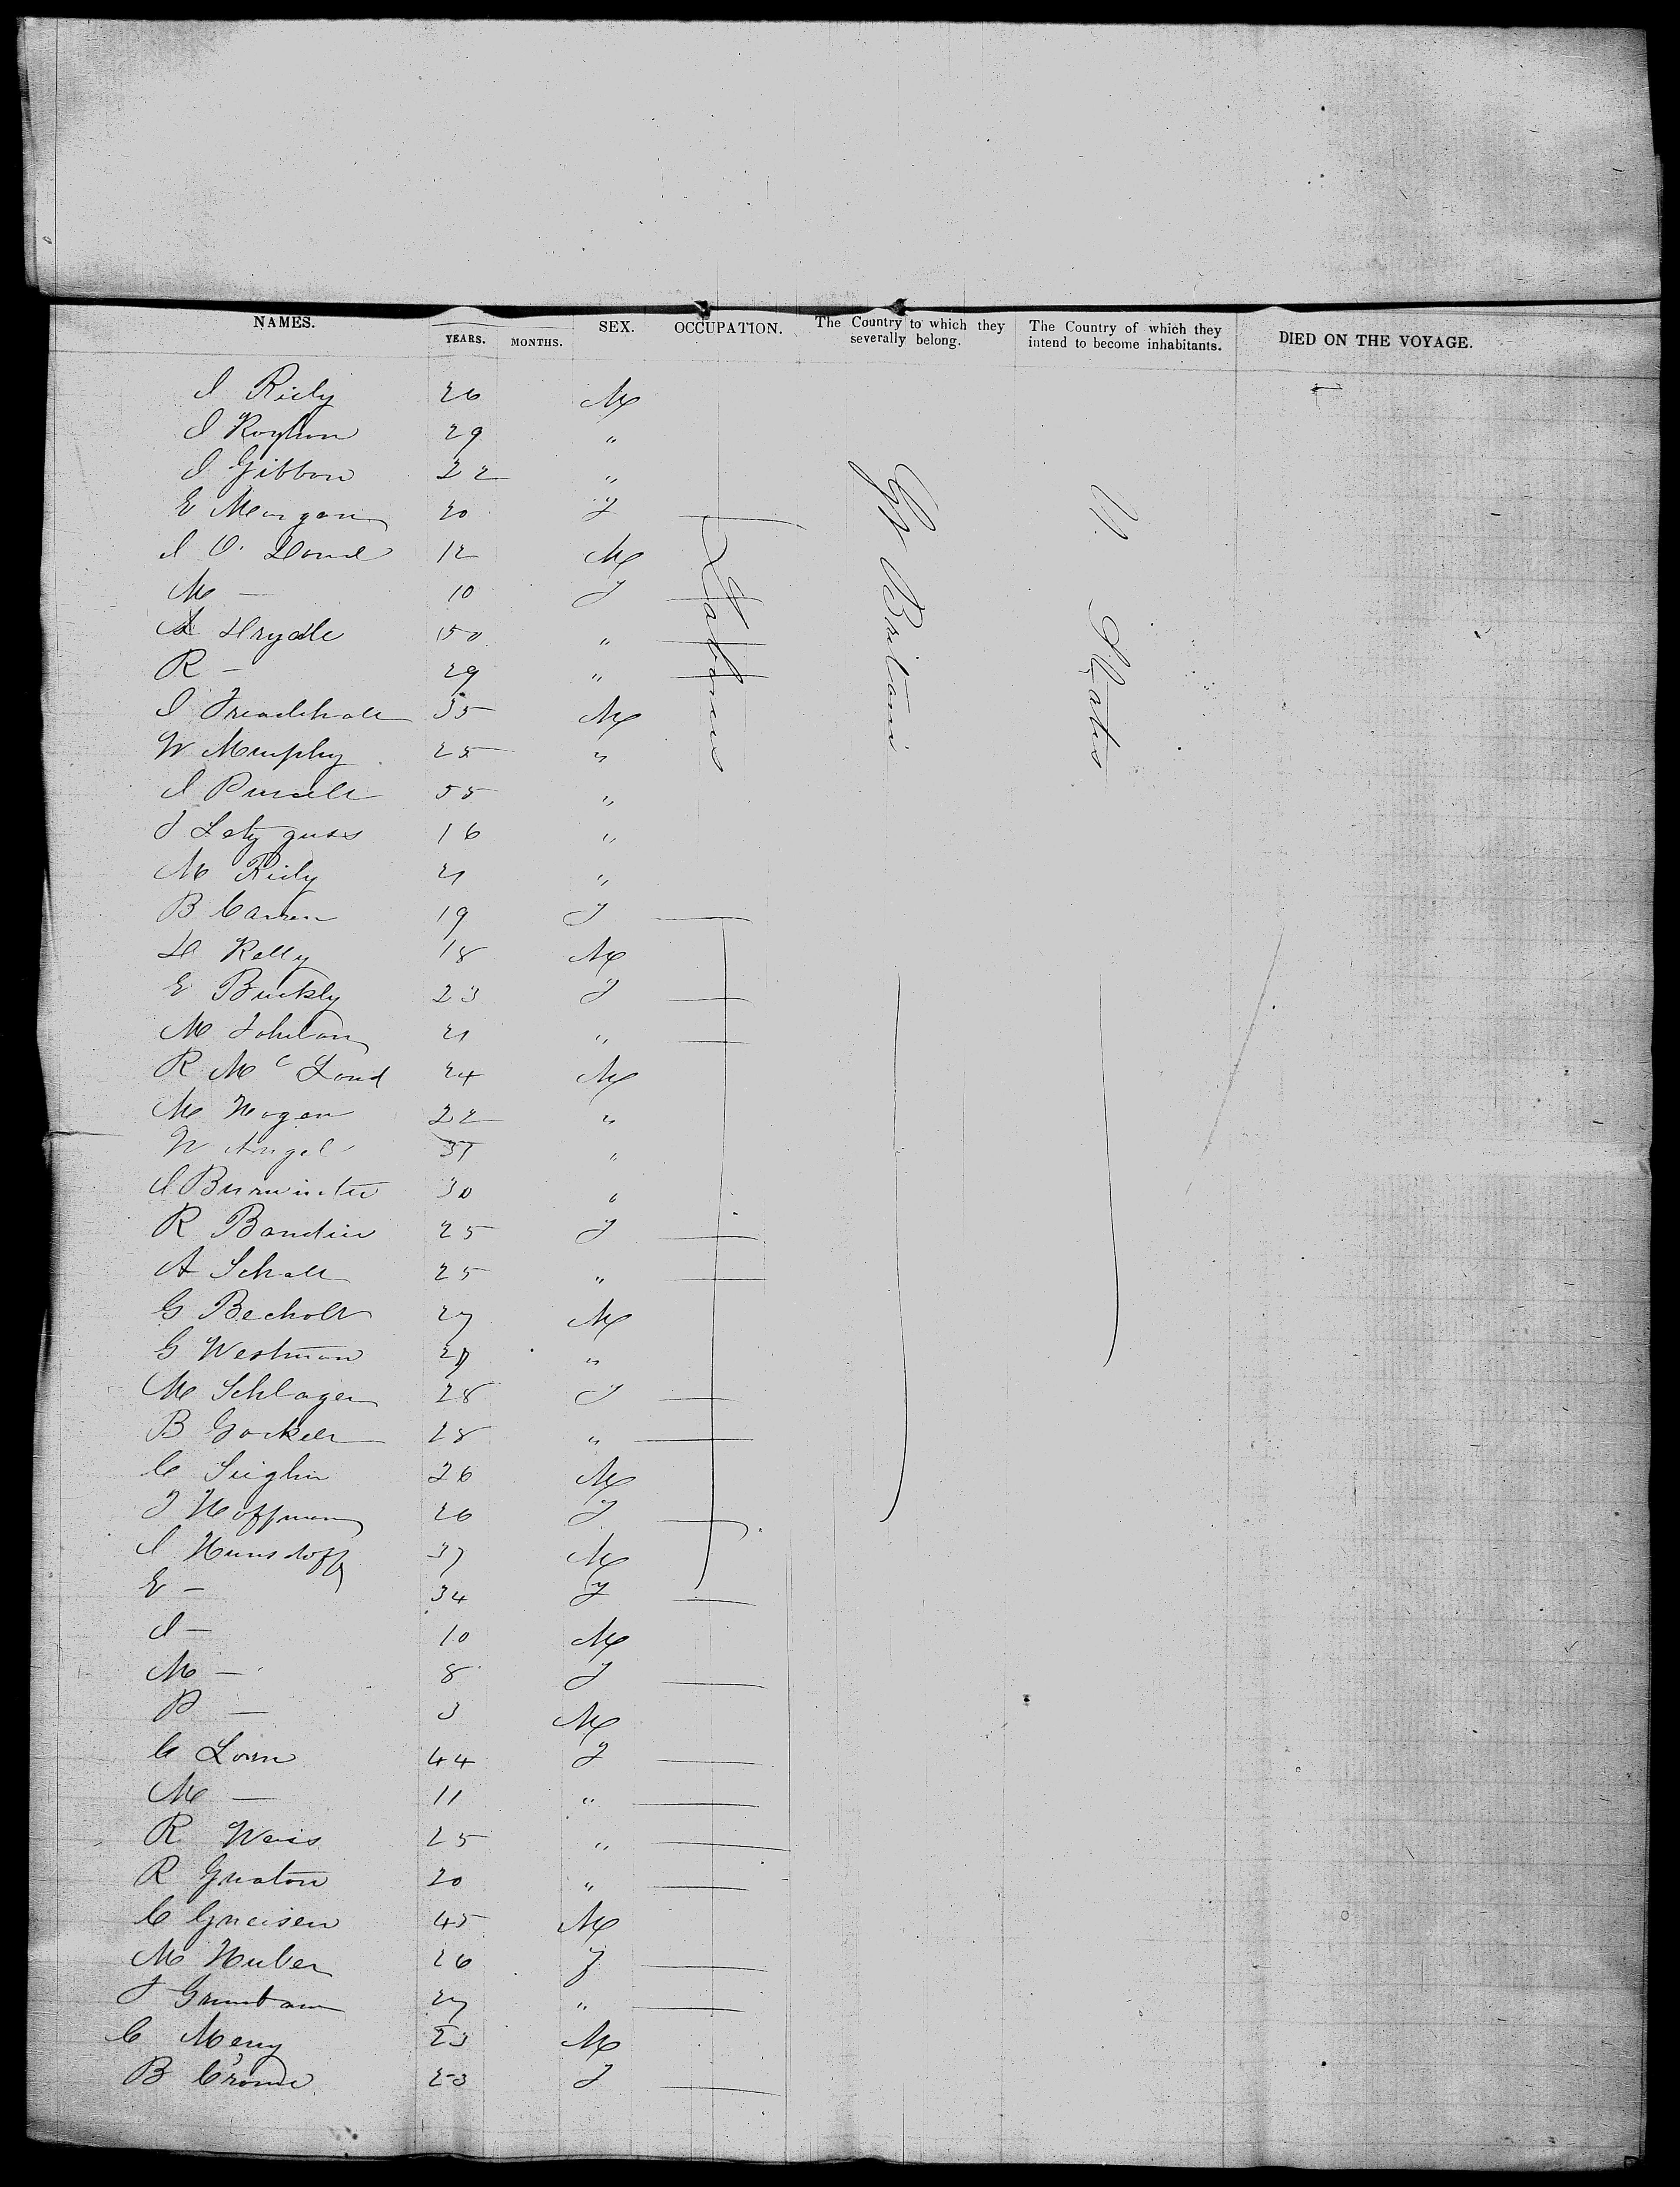 NAMES. YEARS. MONTHS. SEX. OCCUPATION. The Country to which they severally belong. The Country of which they intend to become inhabitants. DIED ON THE VOYAGE.
Labourers
Gt Britain
U. States
J Riely 26 M
J 29 "
J Gibbon 22 "
E Morgan 20 F
J O. 12 M
M — 10 F
50 "
R — 29 "
J 35 M
W Murphy 25 "
J Purcell 55 "
J 16 "
M Riely 21 "
B Carren 19 F
H Kelly 18 M
E Buckly 23 F
M 21 "
R Mc Loud 24 M
M Hogan 22 "
N Angel "
J Burwinter 30 "
R Bandin 25 F
A Schall 25 "
G Becholt 27 M
G Westman "
M Schlager 28 F
B Gockell 28 "
C Sieglin 26 M
F Hoffman 26 F
J Hunsdoff 37 M
E — 34 F
J — 10 M
M — 8 F
P — 3 M
C Lorn 44 F
M — 11 "
R Weis 25 "
R 20 "
C Gneisen 45 M
M Huber 26 F
J 27 "
C Meny 23 M
B 23 F